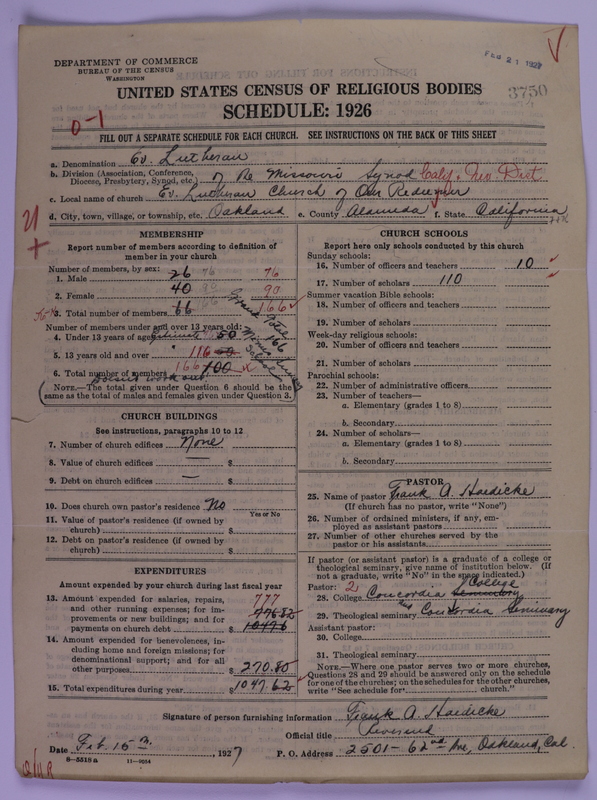 DEPARTMENT OF COMMERCE
BUREAU OF THE CENSUS
WASHINGTON
FEB 21 1927
3750
UNITED STATES CENSUS OF RELIGIOUS BODIES
SCHEDULE: 1926
0-1
FILL OUT A SEPARATE SCHEDULE FOR EACH CHURCH. SEE INSTRUCTIONS ON THE BACK OF THIS SHEET
a. Denomination Ev. Lutheran
b. Division (Association, Conference, Diocese, Presbytery, Synod, etc.) of the Missouri Synod Calif. & Nev. Dist
c. Local name of church Ev. Lutheran Church of Our Redeemer
d. City, town, village, or township, etc. Oakland e. County Alameda f. State California
MEMBERSHIP
Report number of members according to definition of member in your church
Number of members, by sex:
1. Male 26 76 76
2. Female 40 90 90
3. Total number of members 66 166 166
Number of members under and over 13 years old:
4. Under 13 years of age 50
5. 13 years old and over 116
6. Total number of members 166 100
Grand Total 166
doesn't work out
(NOTE.—The total given under Question 6 should be the same as the total of males and females given under Question 3.)
CHURCH BUILDINGS
See instructions, paragraphs 10 to 12
7. Number of church edifices None
8. Value of church edifices — $
9. Debt on church edifices — $
10. Does church own pastor's residence No
Yes or No
11. Value of pastor's residence (if owned by church) $
12. Debt on pastor's residence (if owned by church) $
EXPENDITURES
Amount expended by your church during last fiscal year
13. Amount expended for salaries, repairs, and other running expenses; for improvements or new buildings; and for payments on church debt $ 777 776.82
14. Amount expended for benevolences, including home and foreign missions; for denominational support; and for all other purposes $ 270.80
15. Total expenditures during year $ 1047.62
CHURCH SCHOOLS
Report here only schools conducted by this church
Sunday schools:
16. Number of officers and teachers 10
17. Number of scholars 110
Summer vacation Bible schools:
18. Number of officers and teachers
19. Number of scholars
Week-day religious schools:
20. Number of officers and teachers
21. Number of scholars
Parochial schools:
22. Number of administrative officers
23. Number of teachers—
a. Elementary (grades 1 to 8)
b. Secondary
24. Number of scholars—
a. Elementary (grades 1 to 8)
b. Secondary
PASTOR
25. Name of pastor Frank A. Haedicke
(If church has no pastor, write "None")
26. Number of ordained ministers, if any, employed as assistant pastors
27. Number of other churches served by the pastor or his assistants
If pastor (or assistant pastor) is a graduate of a college or theological seminary, give name of institution below. (If not a graduate, write "No" in the space indicated.)
Pastor: 2 College
28. College Concordia Seminary
29. Theological seminary Concordia Seminary
Assistant pastor:
30. College
31. Theological seminary
NOTE.—Where one pastor serves two or more churches, Questions 28 and 29 should be answered only on the schedule for one of the churches; on the schedules for the other churches, write "See schedule for church."
Signature of person furnishing information Frank A. Haedicke
Official title Reverend
Date Feb. 15th 1927 P. O. Address 2501-62nd Ave, Oakland, Cal.
8-5518 a 11-9014